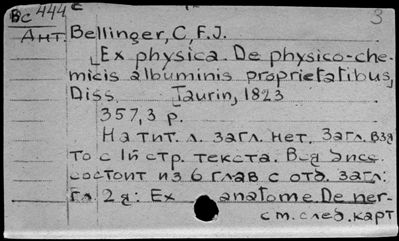 Вс 444 с
3
Ант. Bellinger, C, F. J.
[Ex physica. De physico-che-
micis albuminis proprietatibus]
Diss. Taurin, 1823
357, 3 p.
На тит. л. загл. нет. Загл. взя
то с 1й стр. текста. Вся
состоит из 6 глав с отд. загл:
гл 2я: Ex anatome. De ner-
см. след. карт